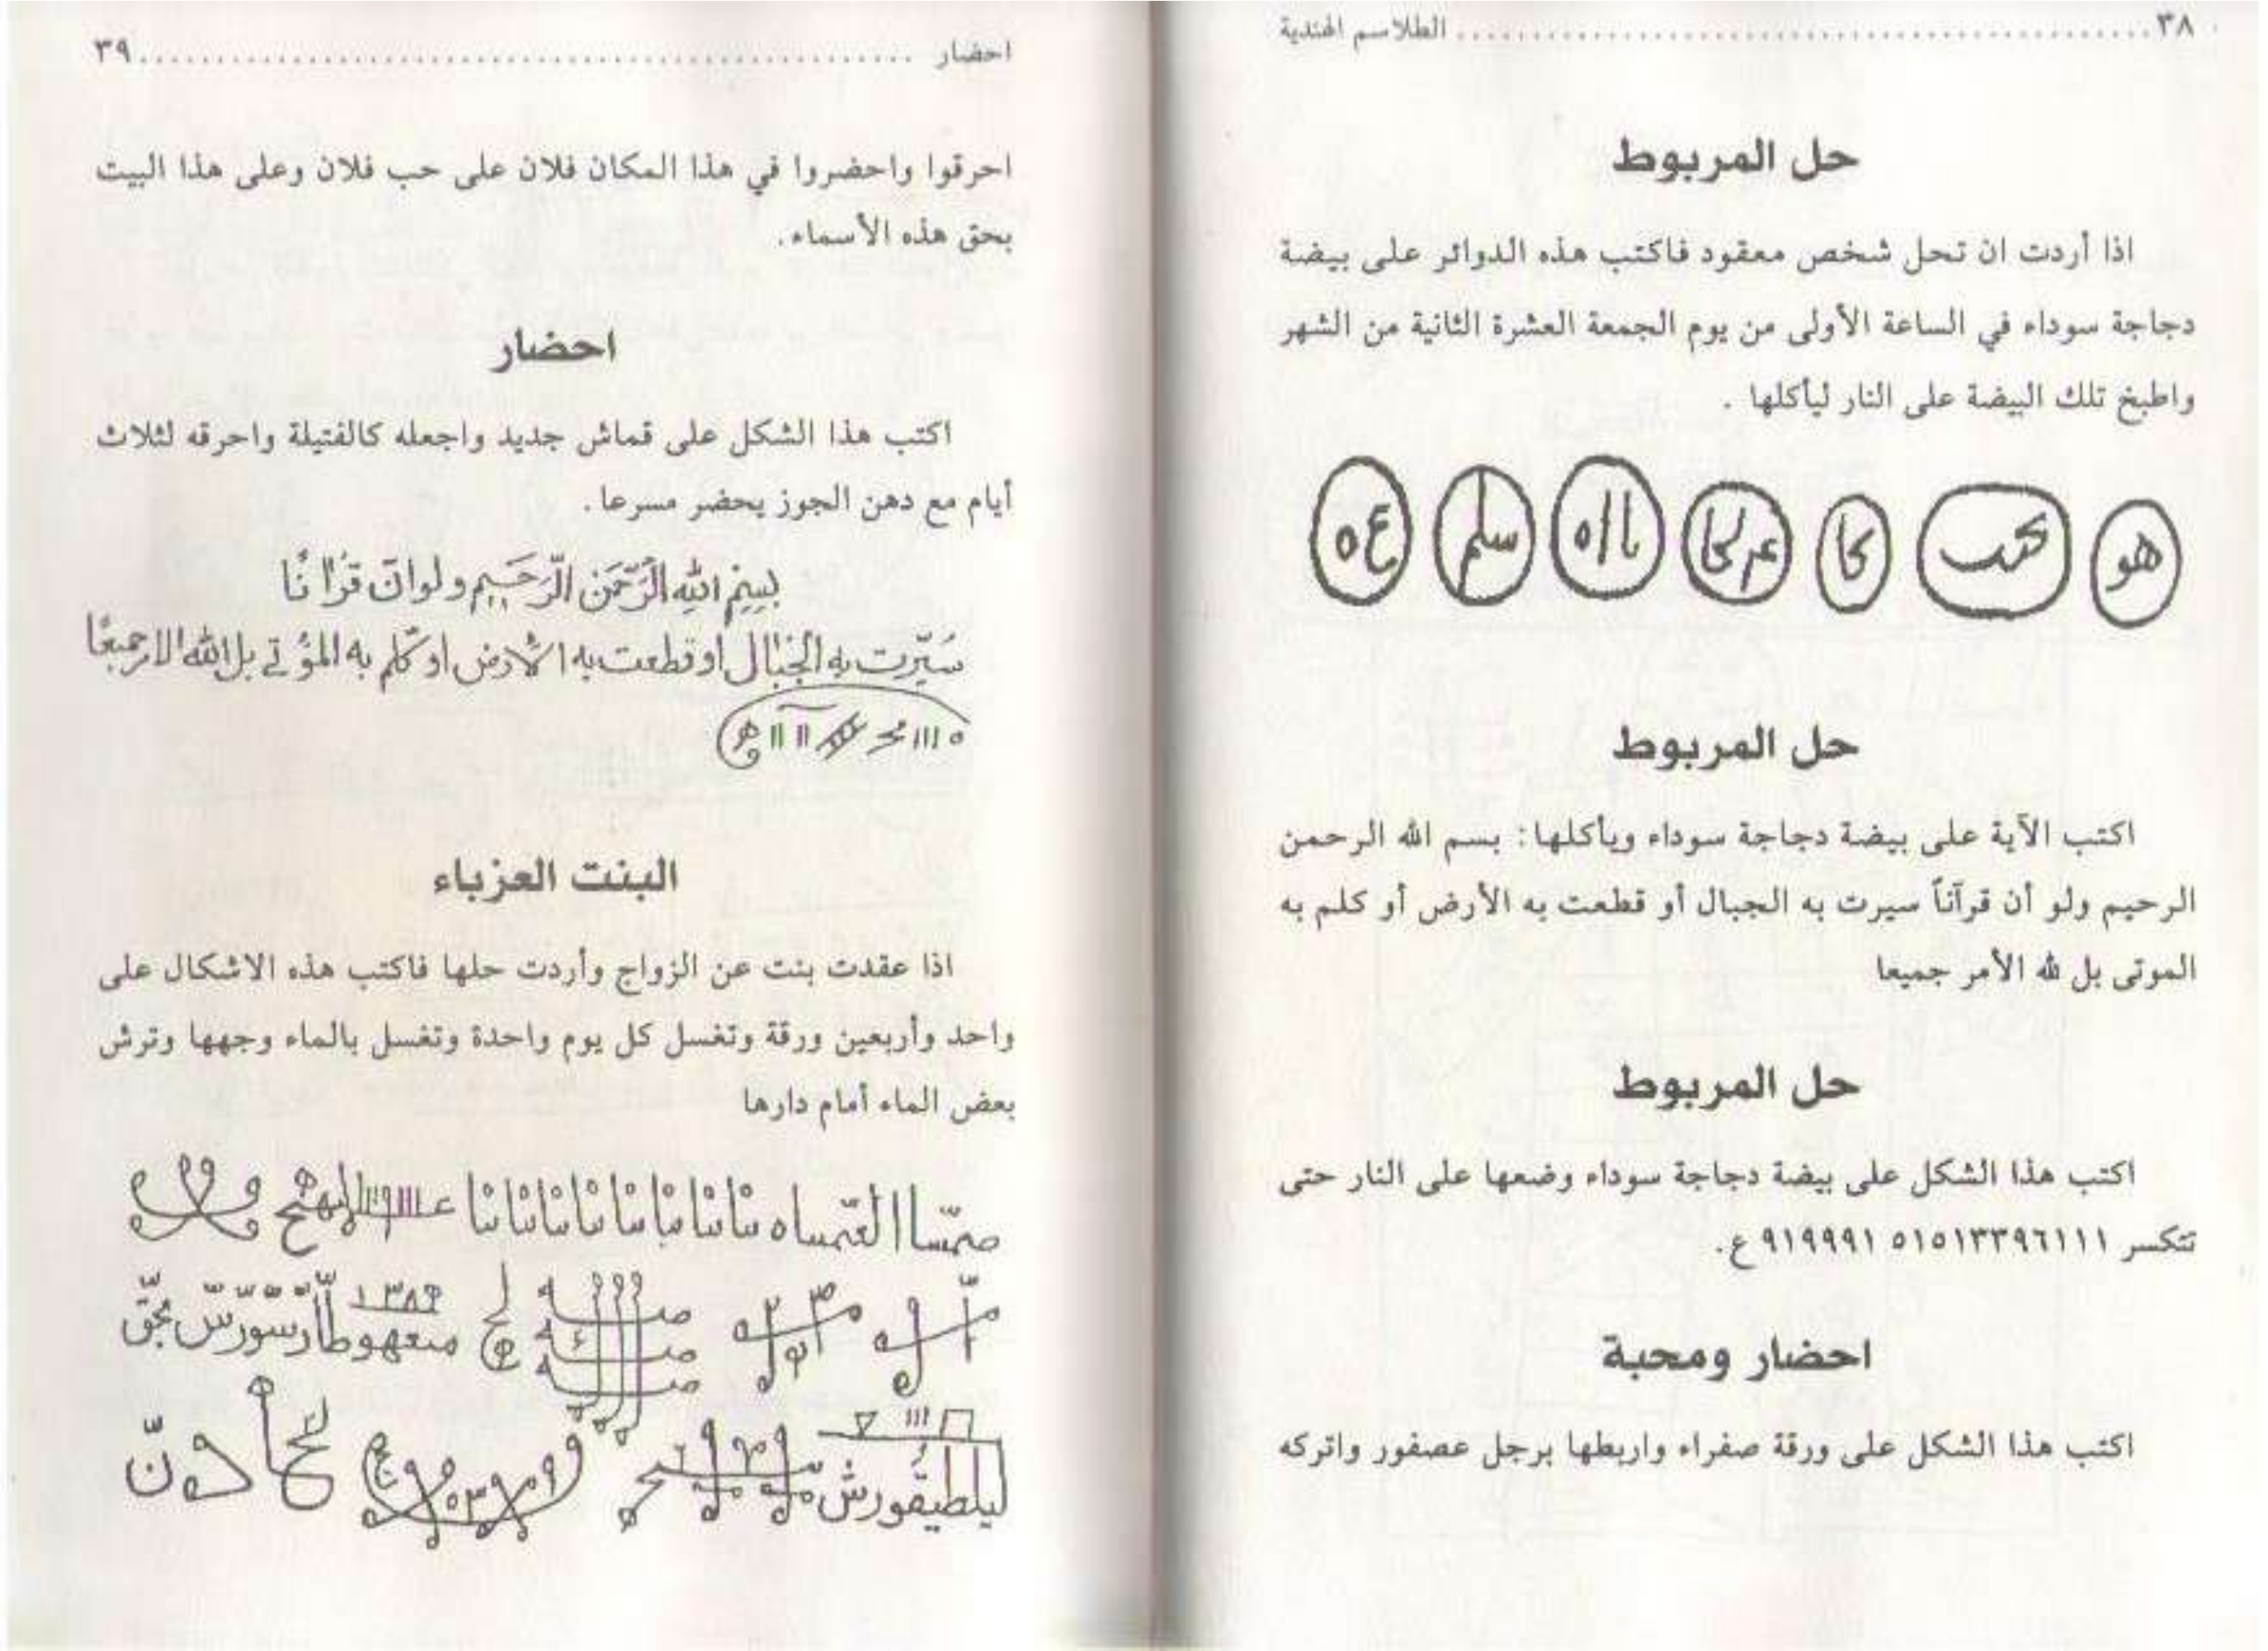 ٣٨ ........ الطلاسم الهندية
حل المربوط
اذا أردت ان تحل شخص معقود فاكتب هذه الدوائر على بيضة
دجاجة سوداء في الساعة الأولى من يوم الجمعة العشرة الثانية من الشهر
واطبخ تلك البيضة على النار ليأكلها .
هو
سلم
ع ه
حل المربوط
اكتب الآية على بيضة دجاجة سوداء ويأكلها: بسم الله الرحمن
الرحيم ولو أن قرآناً سيرت به الجبال أو قطعت به الأرض أو كلم به
الموتى بل لله الأمر جميعا
حل المربوط
اكتب هذا الشكل على بيضة دجاجة سوداء وضعها على النار حتى
تتكسر ٥١٥١٣٣٩٦١١١ ٩١٩٩٩١ ع.
احضار ومحبة
اكتب هذا الشكل على ورقة صفراء واربطها برجل عصفور واتركه
احضار ........ ٣٩
احرقوا واحضروا في هذا المكان فلان على حب فلان وعلى هذا البيت
بحق هذه الأسماء.
احضار
اكتب هذا الشكل على قماش جديد واجعله كالفتيلة واحرقه لثلاث
أيام مع دهن الجوز يحضر مسرعا.
بسم الله الرحمن الرحيم ولو ان قرانا
سيرت به الجبال او قطعت به الارض او كلم به الموتى بل الله الامر جميعا
البنت العزباء
اذا عقدت بنت عن الزواج وأردت حلها فاكتب هذه الاشكال على
واحد وأربعين ورقة وتغسل كل يوم واحدة وتغسل بالماء وجهها وترش
بعض الماء أمام دارها